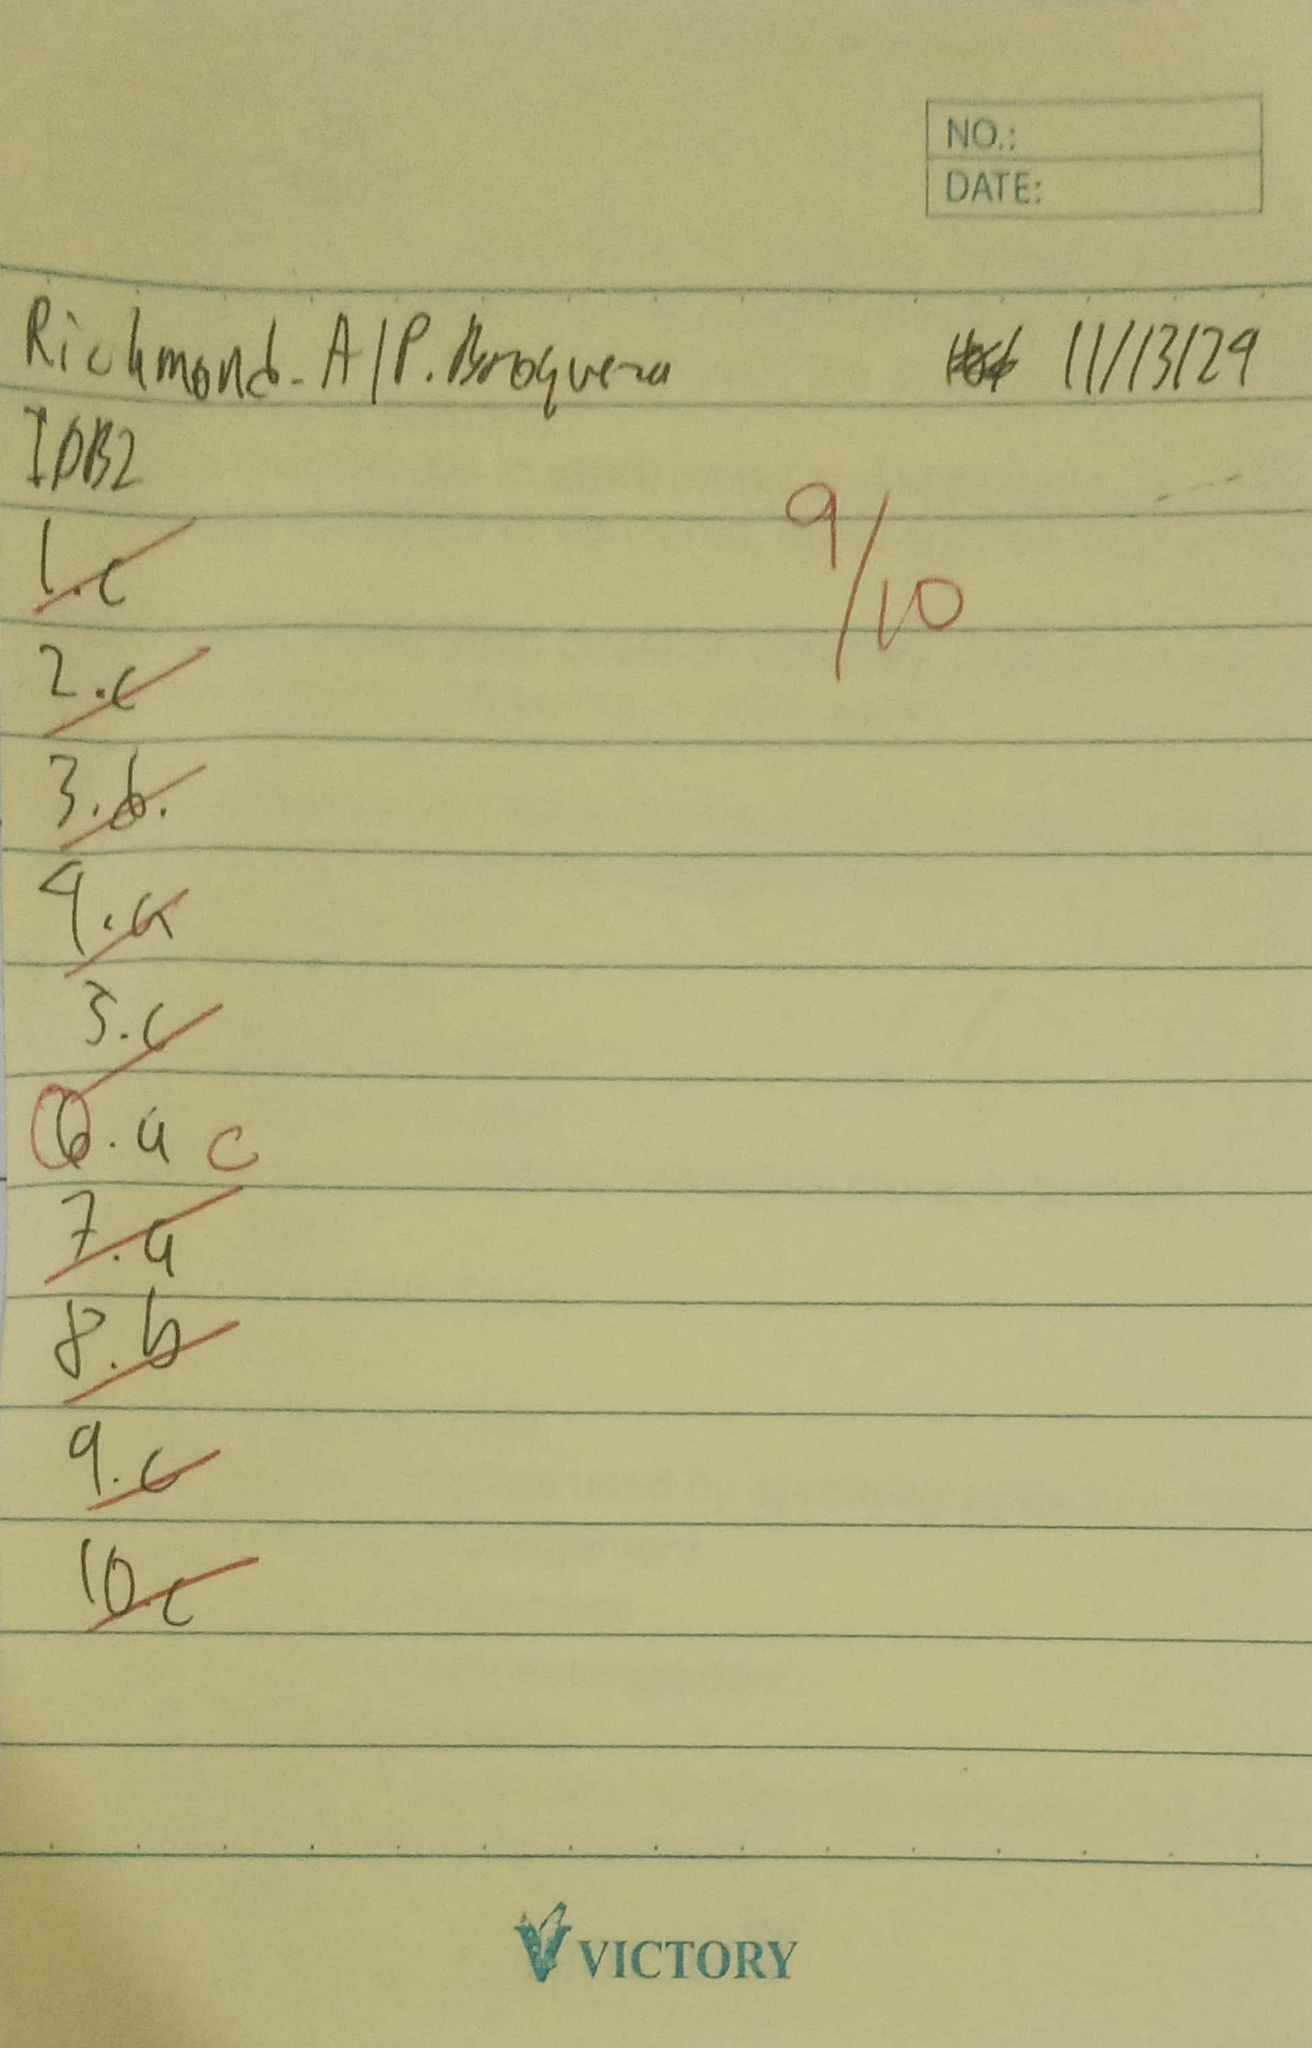 NO.:
DATE:
Richmond. A/P. Broqueza 11/13/24
IDB2
9/10
1. c
2. c
3. b.
4. a
5. c
6. a c
7. a
8. b
9. c
10. c
VICTORY